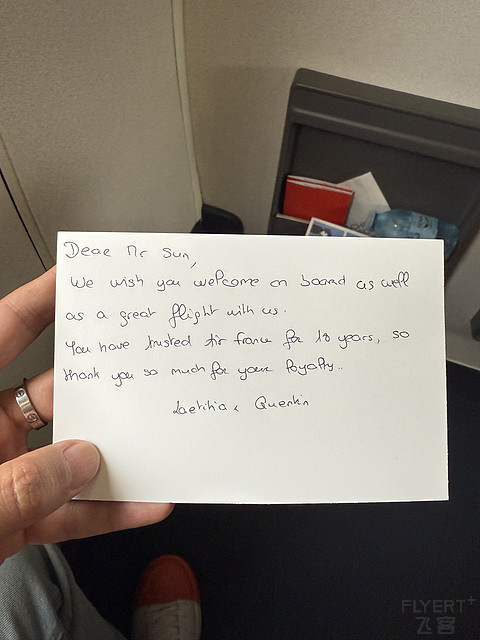 Dear Mr Sun,
We wish you welcome on board as well
as a great flight with us.
You have trusted Air France for 18 years, so
thank you so much for your loyalty..
Laetitia & Quentin
FLYERT+
飞客